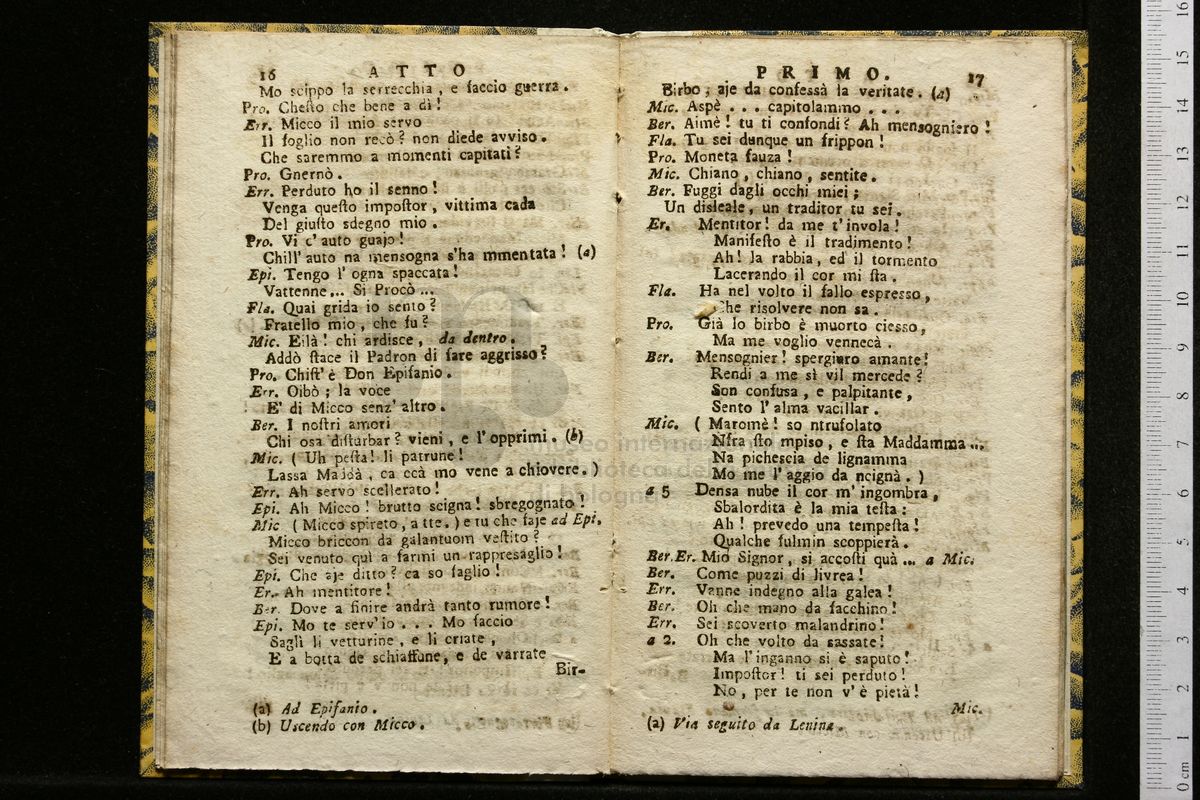 16 ATTO
Mo scippo la serrecchia, e faccio guerra.
Pro. Chesto che bene a dì!
Err. Micco il mio servo
Il foglio non recò? non diede avviso.
Che saremmo a momenti capitati?
Pro. Gnernò.
Err. Perduto ho il senno!
Venga questo impostor, vittima cada
Del giusto sdegno mio.
Pro. Vi c' auto guajo!
Chill' auto na mensogna s'ha mmentata! (a)
Epi. Tengo l' ogna spaccata!
Vattenne... Si Procò ...
Fla. Quai grida io sento?
Fratello mio, che fu?
Mic. Eilà! chi ardisce, da dentro.
Addò stace il Padron di fare aggrisso?
Pro. Chist' è Don Epifanio.
Err. Oibò; la voce
E' di Micco senz' altro.
Ber. I nostri amori
Chi osa disturbar? vieni, e l' opprimi. (b)
Mic. (Uh pesta! li patrune!
Lassa Maddà, ca ccà mo vene a chiovere.)
Err. Ah servo scellerato!
Epi. Ah Micco! brutto scigna! sbregognato!
Mic (Micco spireto, a tte.) e tu che faje ad Epi.
Micco briccon da galantuom vestito?
Sei venuto quì a farmi un rappresaglio!
Epi. Che aje ditto? ca so faglio!
Er. Ah mentitore!
Ber. Dove a finire andrà tanto rumore!
Epi. Mo te serv' io . . . Mo faccio
Saglì li vetturine, e li criate,
E a botta de schiaffune, e de varrate
Bir-
(a) Ad Epifanio.
(b) Uscendo con Micco.
PRIMO. 17
Birbo; aje da confessà la veritate. (a)
Mic. Aspè . . . capitolammo . . .
Ber. Aimè! tu ti confondi? Ah mensogniero!
Fla. Tu sei dunque un frippon!
Pro. Moneta fauza!
Mic. Chiano, chiano, sentite.
Ber. Fuggi dagli occhi miei;
Un disleale, un traditor tu sei.
Er. Mentitor! da me t' invola!
Manifesto è il tradimento!
Ah! la rabbia, ed il tormento
Lacerando il cor mi sta.
Fla. Ha nel volto il fallo espresso,
Che risolvere non sa.
Pro. Già lo birbo è muorto ciesso,
Ma me voglio vennecà.
Ber. Mensognier! spergiuro amante!
Rendi a me sì vil mercede?
Son confusa, e palpitante,
Sento l' alma vacillar.
Mic. (Maromè! so ntrufolato
Nfra sto mpiso, e sta Maddamma...
Na pichescia de lignamma
Mo me l' aggio da ncignà.)
a 5 Densa nube il cor m' ingombra,
Sbalordita è la mia testa:
Ah! prevedo una tempesta!
Qualche fulmin scoppierà.
Ber. Er. Mio Signor, si accosti quà ... a Mic.
Ber. Come puzzi di livrea!
Err. Vanne indegno alla galea!
Ber. Oh che mano da facchino!
Err. Sei scoverto malandrino!
a 2. Oh che volto da sassate!
Ma l' inganno si è saputo!
Impostor! ti sei perduto!
No, per te non v' è pietà!
Mic.
(a) Via seguito da Lenina.